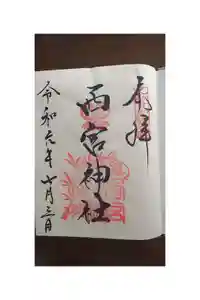 奉拝
西宮神社
令和元年七月三日